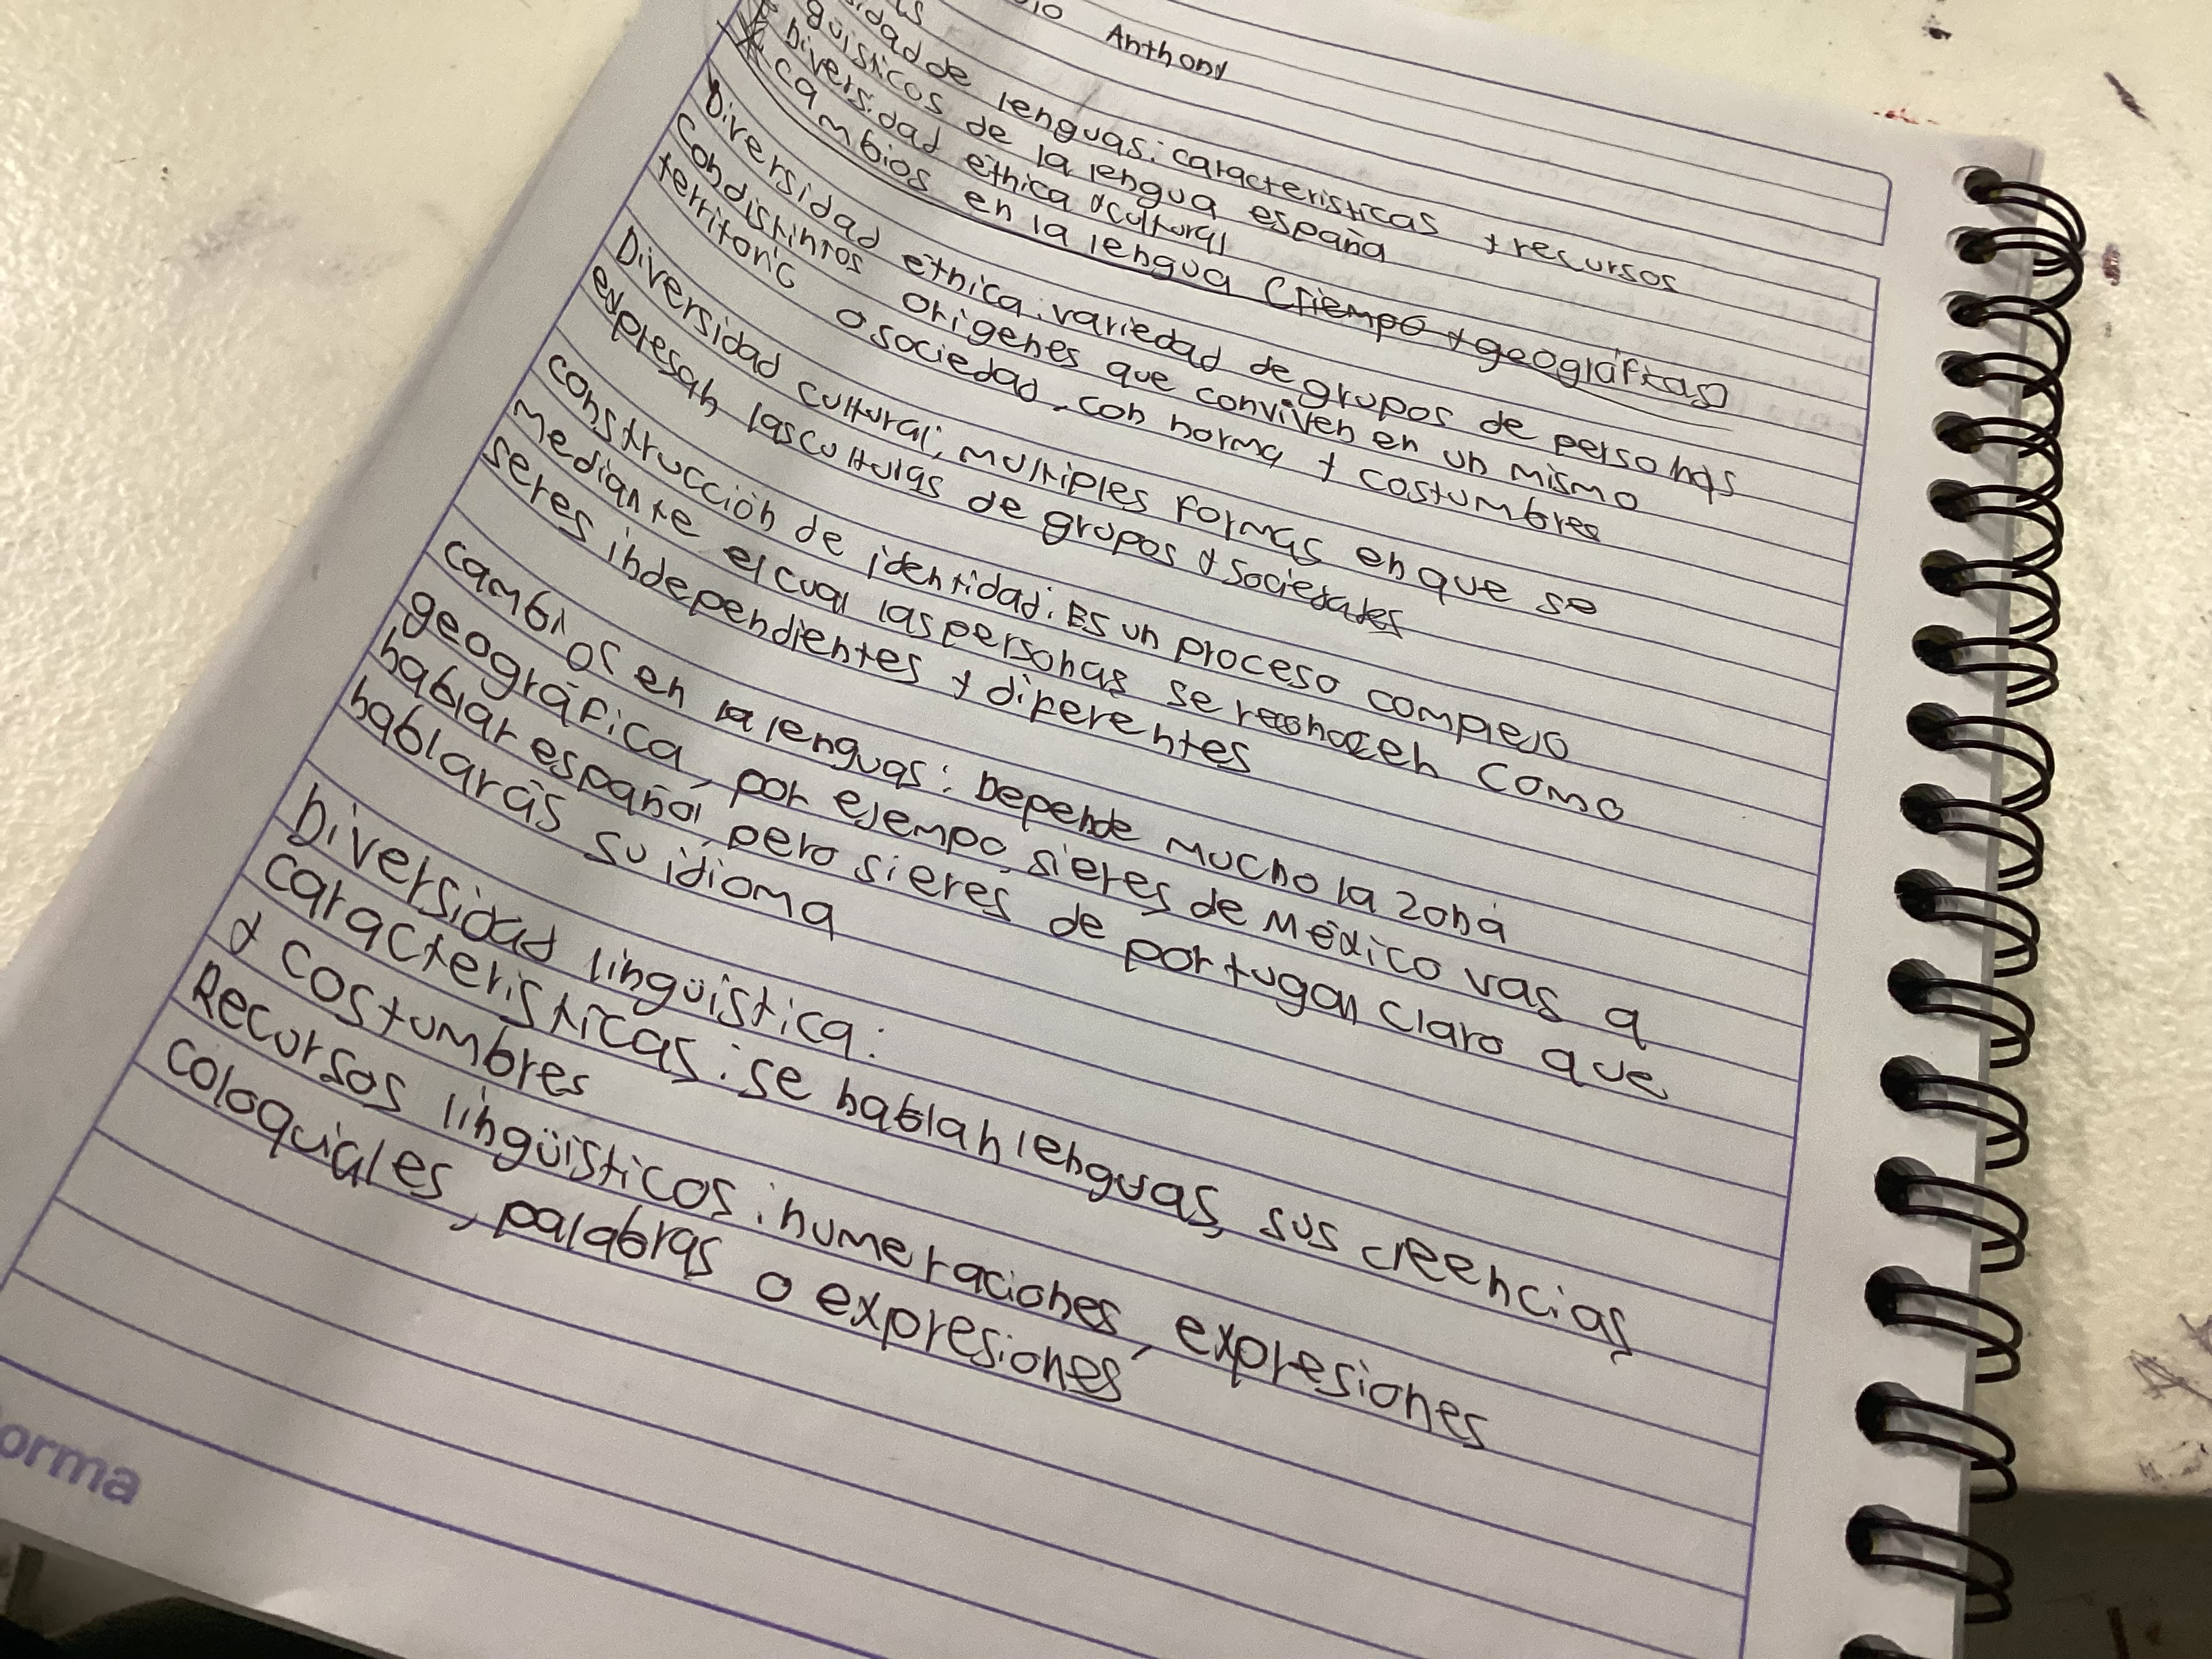 Anthony
de lenguas: caracteristicas y recursos
güisticos de la lengua españa
Diversidad étnica y cultural
cambios en la lengua (Tiempo y geográficas)
Diversidad étnica: variedad de grupos de personas
Con distintos origenes que conviven en un mismo
territorio o sociedad, con norma y costumbres
Diversidad cultural; multiples formas en que se
expresan las culturas de grupos y sociedades
construcción de identidad: Es un proceso complejo
mediante el cual las personas se reconocen como
seres independientes y diferentes
cambios en la lenguas: Depende mucho la zona
geográfica, por ejempo, si eres de México vas a
hablar español, pero si eres de portugal claro que
hablarás su idioma
Diversidad lingüistica:
caracteristicas: se hablan lenguas, sus creencias
y costumbres
Recursos lingüisticos: numeraciones, expresiones
coloquiales, palabras o expresiones
orma